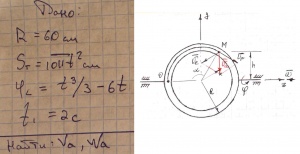 Дано:
R = 60 см
Sr = 10πt² см
φe = t³/3 - 6t
t₁ = 2c
Найти: Va, Wa
y
M
O
h
R
φ